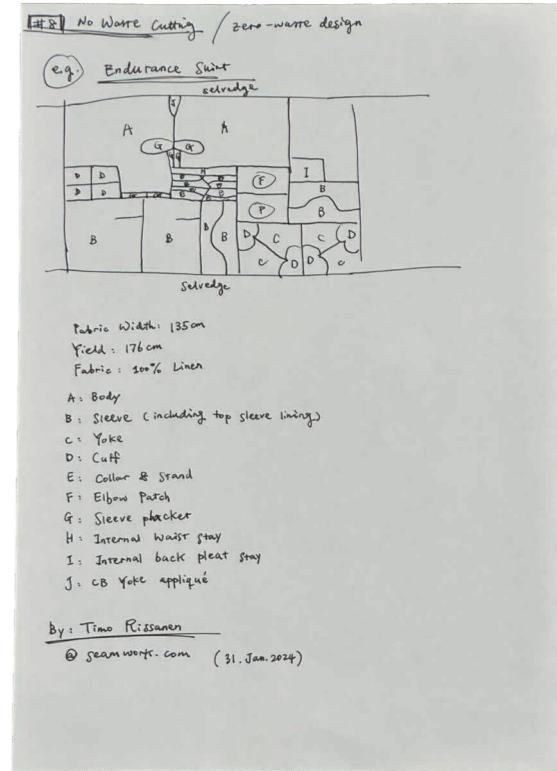 #8 No Waste Cutting / zero-waste design
e.g. Endurance Shirt
selvedge
J
A A
G G
H
D D
D D
E
E
F
I
B
B
P
B B B B
D C C D
C D D C
Selvedge
Fabric Width: 135cm
Yield: 176cm
Fabric: 100% Linen
A: Body
B: Sleeve (including top sleeve lining)
C: Yoke
D: Cuff
E: Collar & Stand
F: Elbow Patch
G: Sleeve placket
H: Internal Waist stay
I: Internal back pleat stay
J: CB Yoke appliqué
By: Timo Rissanen
@ seamwork.com (31. Jan. 2024)